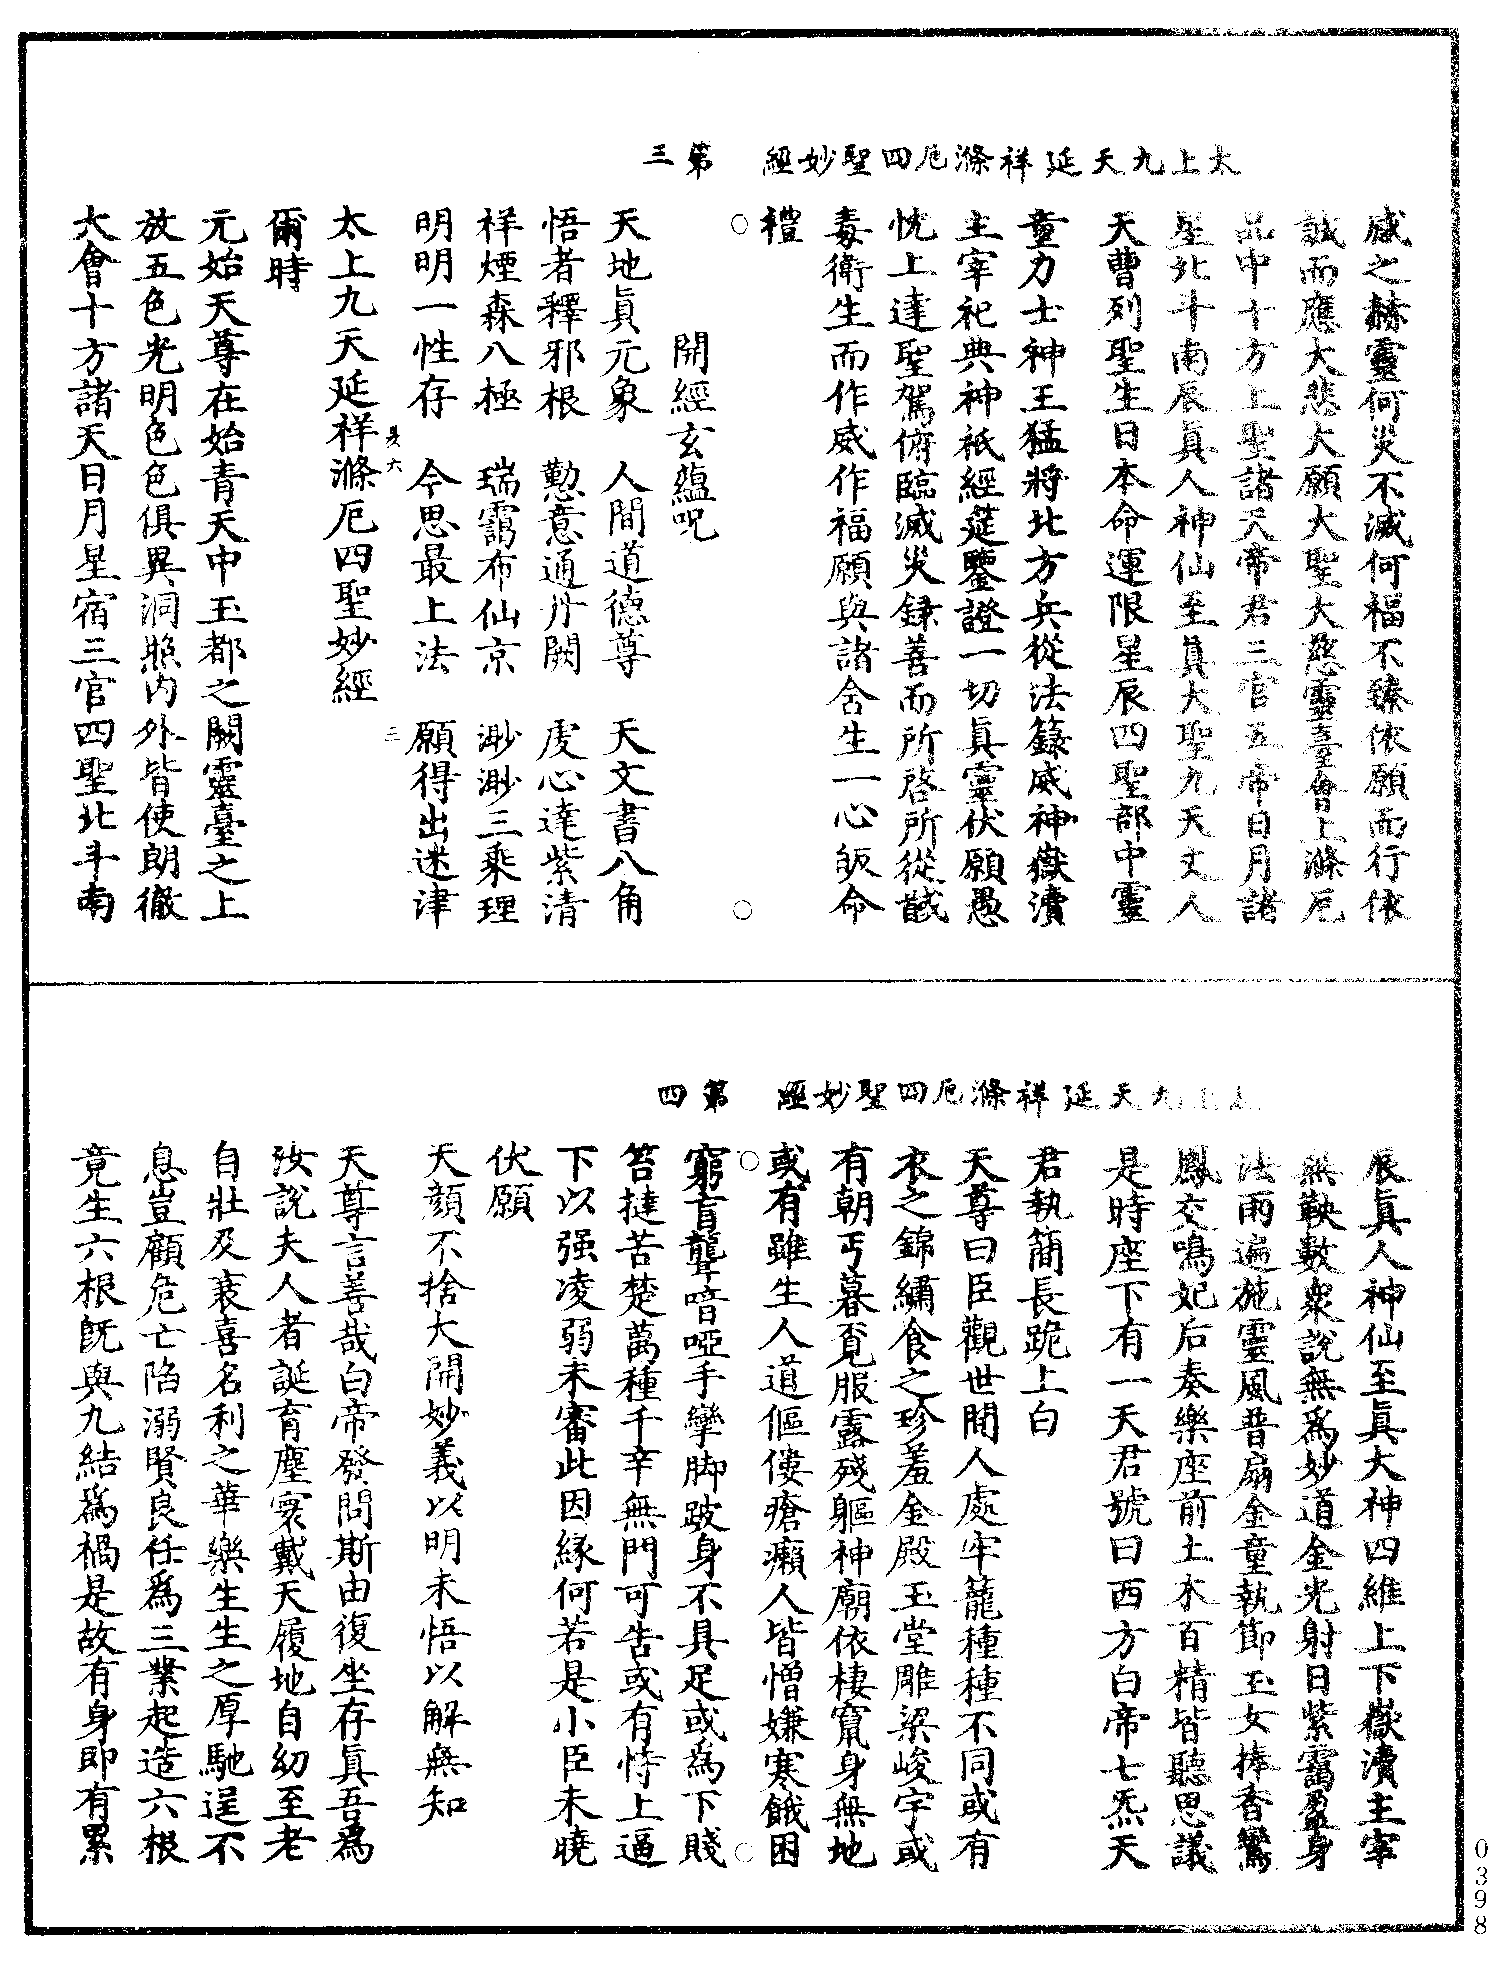 太上九天延祥滌厄四聖妙經　第三
感之赫靈何災不滅何福不臻依願而行依
誠而應大悲大願大聖大慈靈臺會上滌厄
品中十方上聖諸天帝君三官五帝日月諸
星北斗南辰眞人神仙至眞大聖九天丈人
天曹列聖生日本命運限星辰四聖部中靈
童力士神王猛將北方兵從法籙威神嶽瀆
主宰祀典神祇經筵鑒證一切眞靈伏願愚
忱上達聖駕俯臨滅災録善而所啓所從誠
毒衛生而作威作福願與諸含生一心皈命
禮
開經玄蘊呪
天地眞元象　人間道德尊　天文書八角
悟者釋邪根　懃意通丹闕　虔心達紫清
祥煙森八極　瑞靄布仙京　渺渺三乘理
明明一性存　今思最上法　願得出迷津
六　三
太上九天延祥滌厄四聖妙經
爾時
元始天尊在始青天中玉都之闕靈臺之上
放五色光明色色俱異洞照內外皆使朗徹
大會十方諸天日月星宿三官四聖北斗南
太上九天延祥滌厄四聖妙經　第四
辰眞人神仙至眞大神四維上下嶽瀆主宰
無鞅數衆說無爲妙道金光射日紫靄盈身
法雨遍施靈風普扇金童執節玉女捧香鸞
鳳交鳴妃后奏樂座前土木百精皆聽思議
是時座下有一天君號曰西方白帝七炁天
君執簡長跪上白
天尊曰臣觀世間人處牢籠種種不同或有
衣之錦繡食之珍羞金殿玉堂雕梁峻宇或
有朝丐暮覓服露殘軀神廟依棲竄身無地
或有雖生人道傴僂瘡癩人皆憎嫌寒餓困
窮盲聾喑啞手攣脚跛身不具足或爲下賤
笞撻苦楚萬種千辛無門可告或有恃上逼
下以强凌弱未審此因緣何若是小臣未曉
伏願
天顏不捨大開妙義以明未悟以解無知
天尊言善哉白帝發問斯由復坐存眞吾爲
汝說夫人者誕育塵寰戴天履地自幼至老
自壯及衰喜名利之華樂生生之厚馳逞不
息豈顧危亡陷溺賢良任爲三業起造六根
竟生六根旣與九結爲禍是故有身即有累
0398